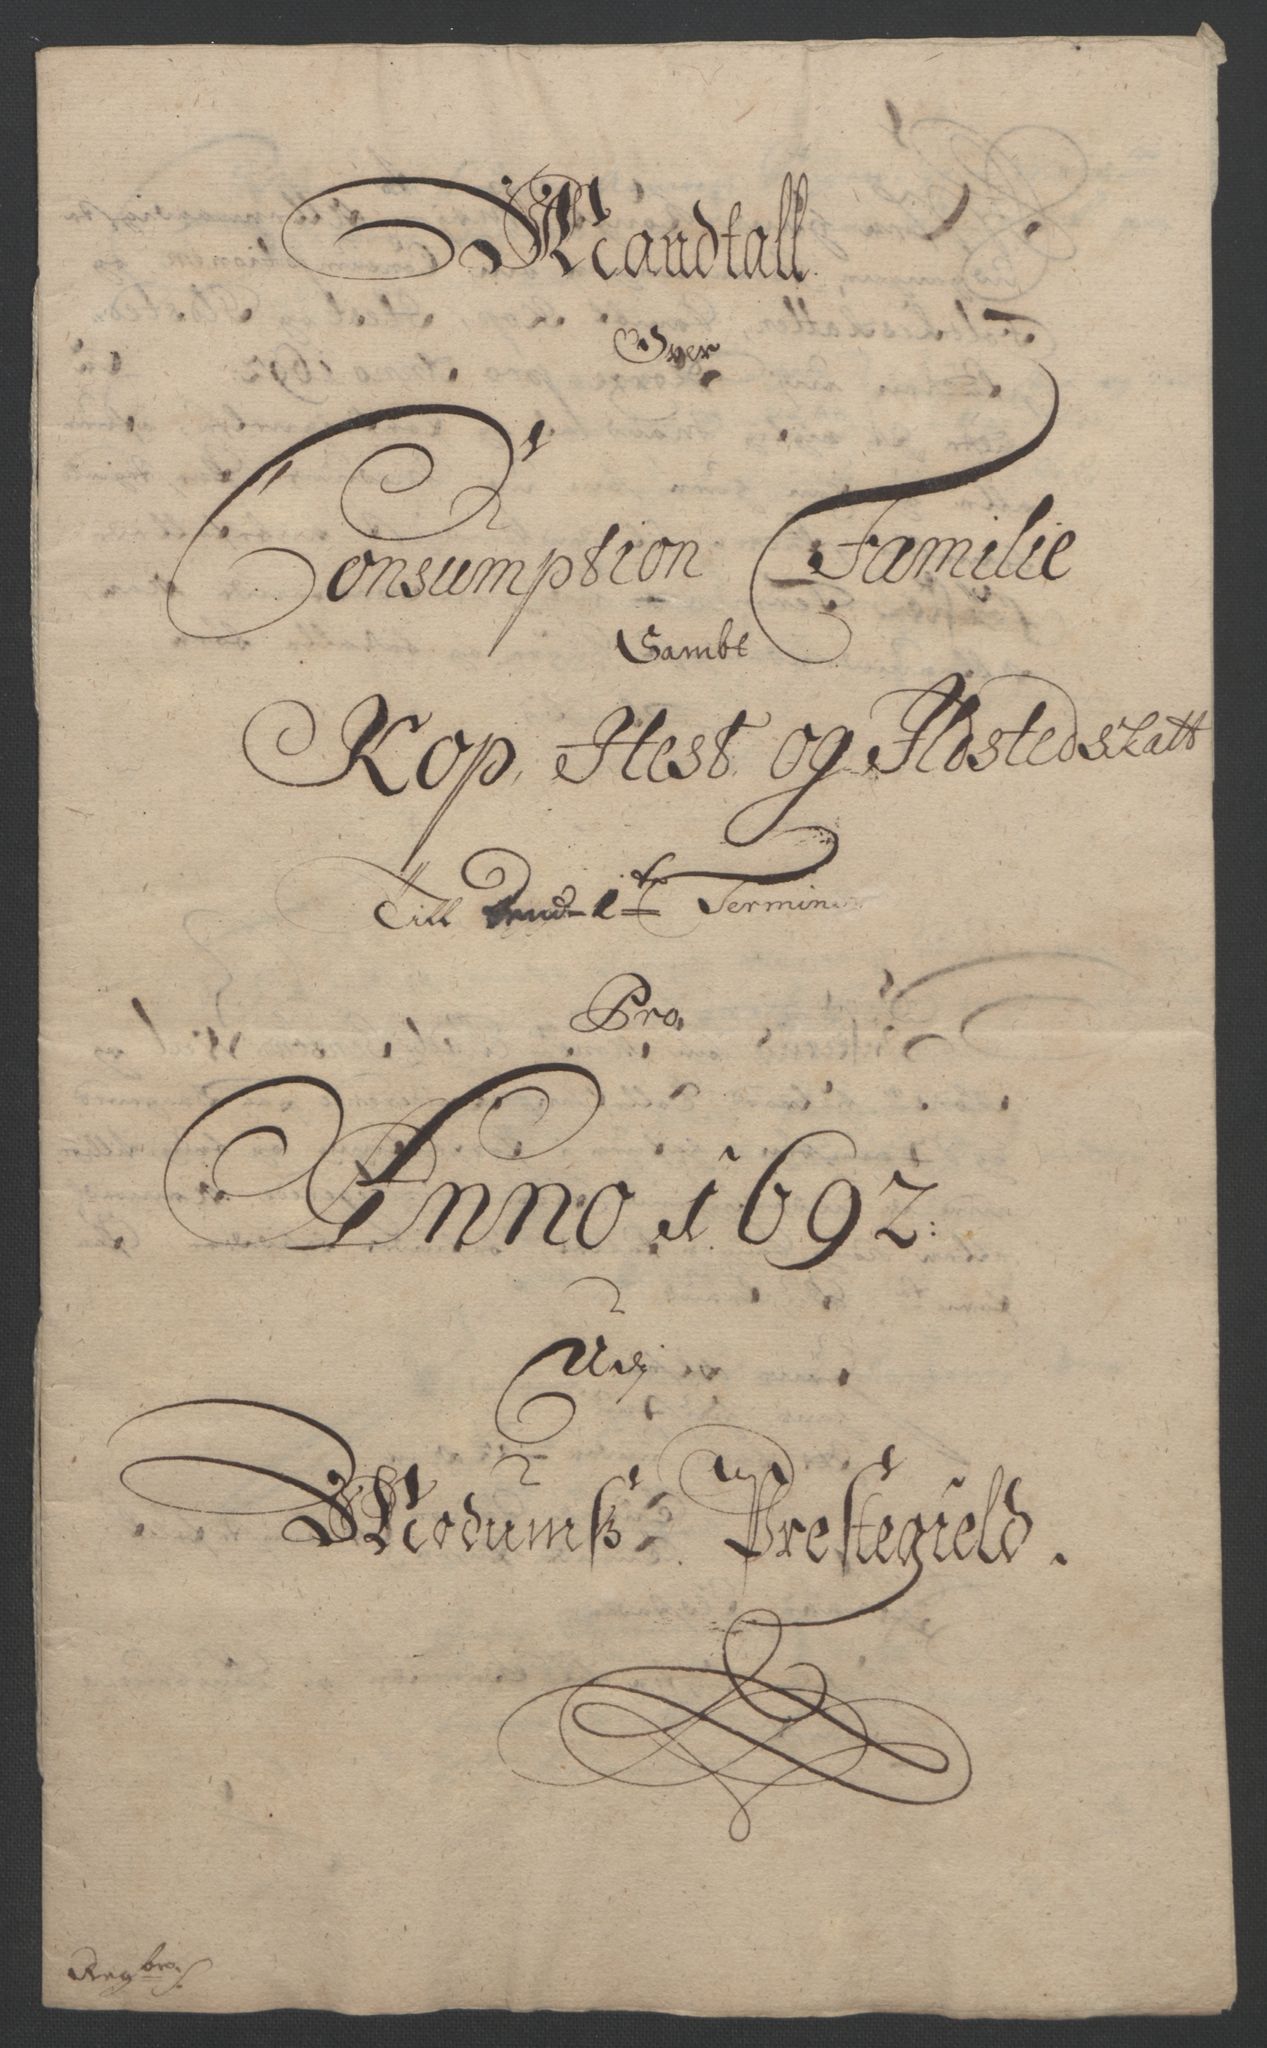 Mandtall
Over
Consumption Familie
Sambt
Kop, Hest, og Ildstedskatt
Till 1te Termin
Pro
Anno 1692:
Udj
Modumsß Prestegield.